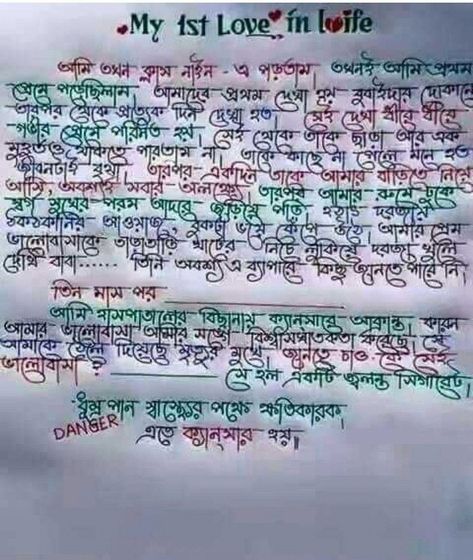 My 1st Love in Loife
আমি তখন ক্লাস নাইন - এ পড়তাম, তখনই আমি প্রথম
প্রেমে পড়েছিলাম আমাদের প্রথম দেখা হয় বুবাইদার দোকানে
তারপর থেকে প্রত্যেক দিন দেখা হত। সেই দেখা ধীরে ধীরে
গভীর প্রেমে পরিনত হয়। সেই থেকে তাকে ছাড়া আর এক
মুহূর্তও থাকিতে পারতাম না। তাকে কাছে না পেলে মনে হত
জীবনটাই বৃথা। তারপর একদিন তাকে আমার বাড়িতে নিয়ে
আসি, অবশ্যই সবার অলক্ষ্যে। তারপর আমার রুমে ঢুকে
স্বর্গ সুখের পরম আদরে জড়িয়ে পড়ি, হঠাৎ দরজায়
ঠকঠকানির আওয়াজ, বুকটা ভয়ে কেঁপে ওঠে আমার প্রেম
ভালোবাসাকে তাড়াতাড়ি খাটের নিচে লুকিয়ে দরজা খুলে
দেখি বাবা...... তিনি অবশ্য এ ব্যাপারে কিছু জানতে পারে নি।
তিন মাস পর
আমি হাসপাতালের বিছানায় ক্যানসারে আক্রান্ত। কারন
আমার ভালোবাসা আমার সঙ্গে বিশ্বাসঘাতকতা করেছে। সে
আমাকে ঠেলে দিয়েছে মৃত্যুর মুখে। জানতে চাও কে সেই
ভালোবাসা? সে হল একটি জ্বলন্ত সিগারেট।
ধুম্র পান স্বাস্থ্যের পক্ষে ক্ষতিকারক,
DANGER এতে ক্যানসার হয়॥